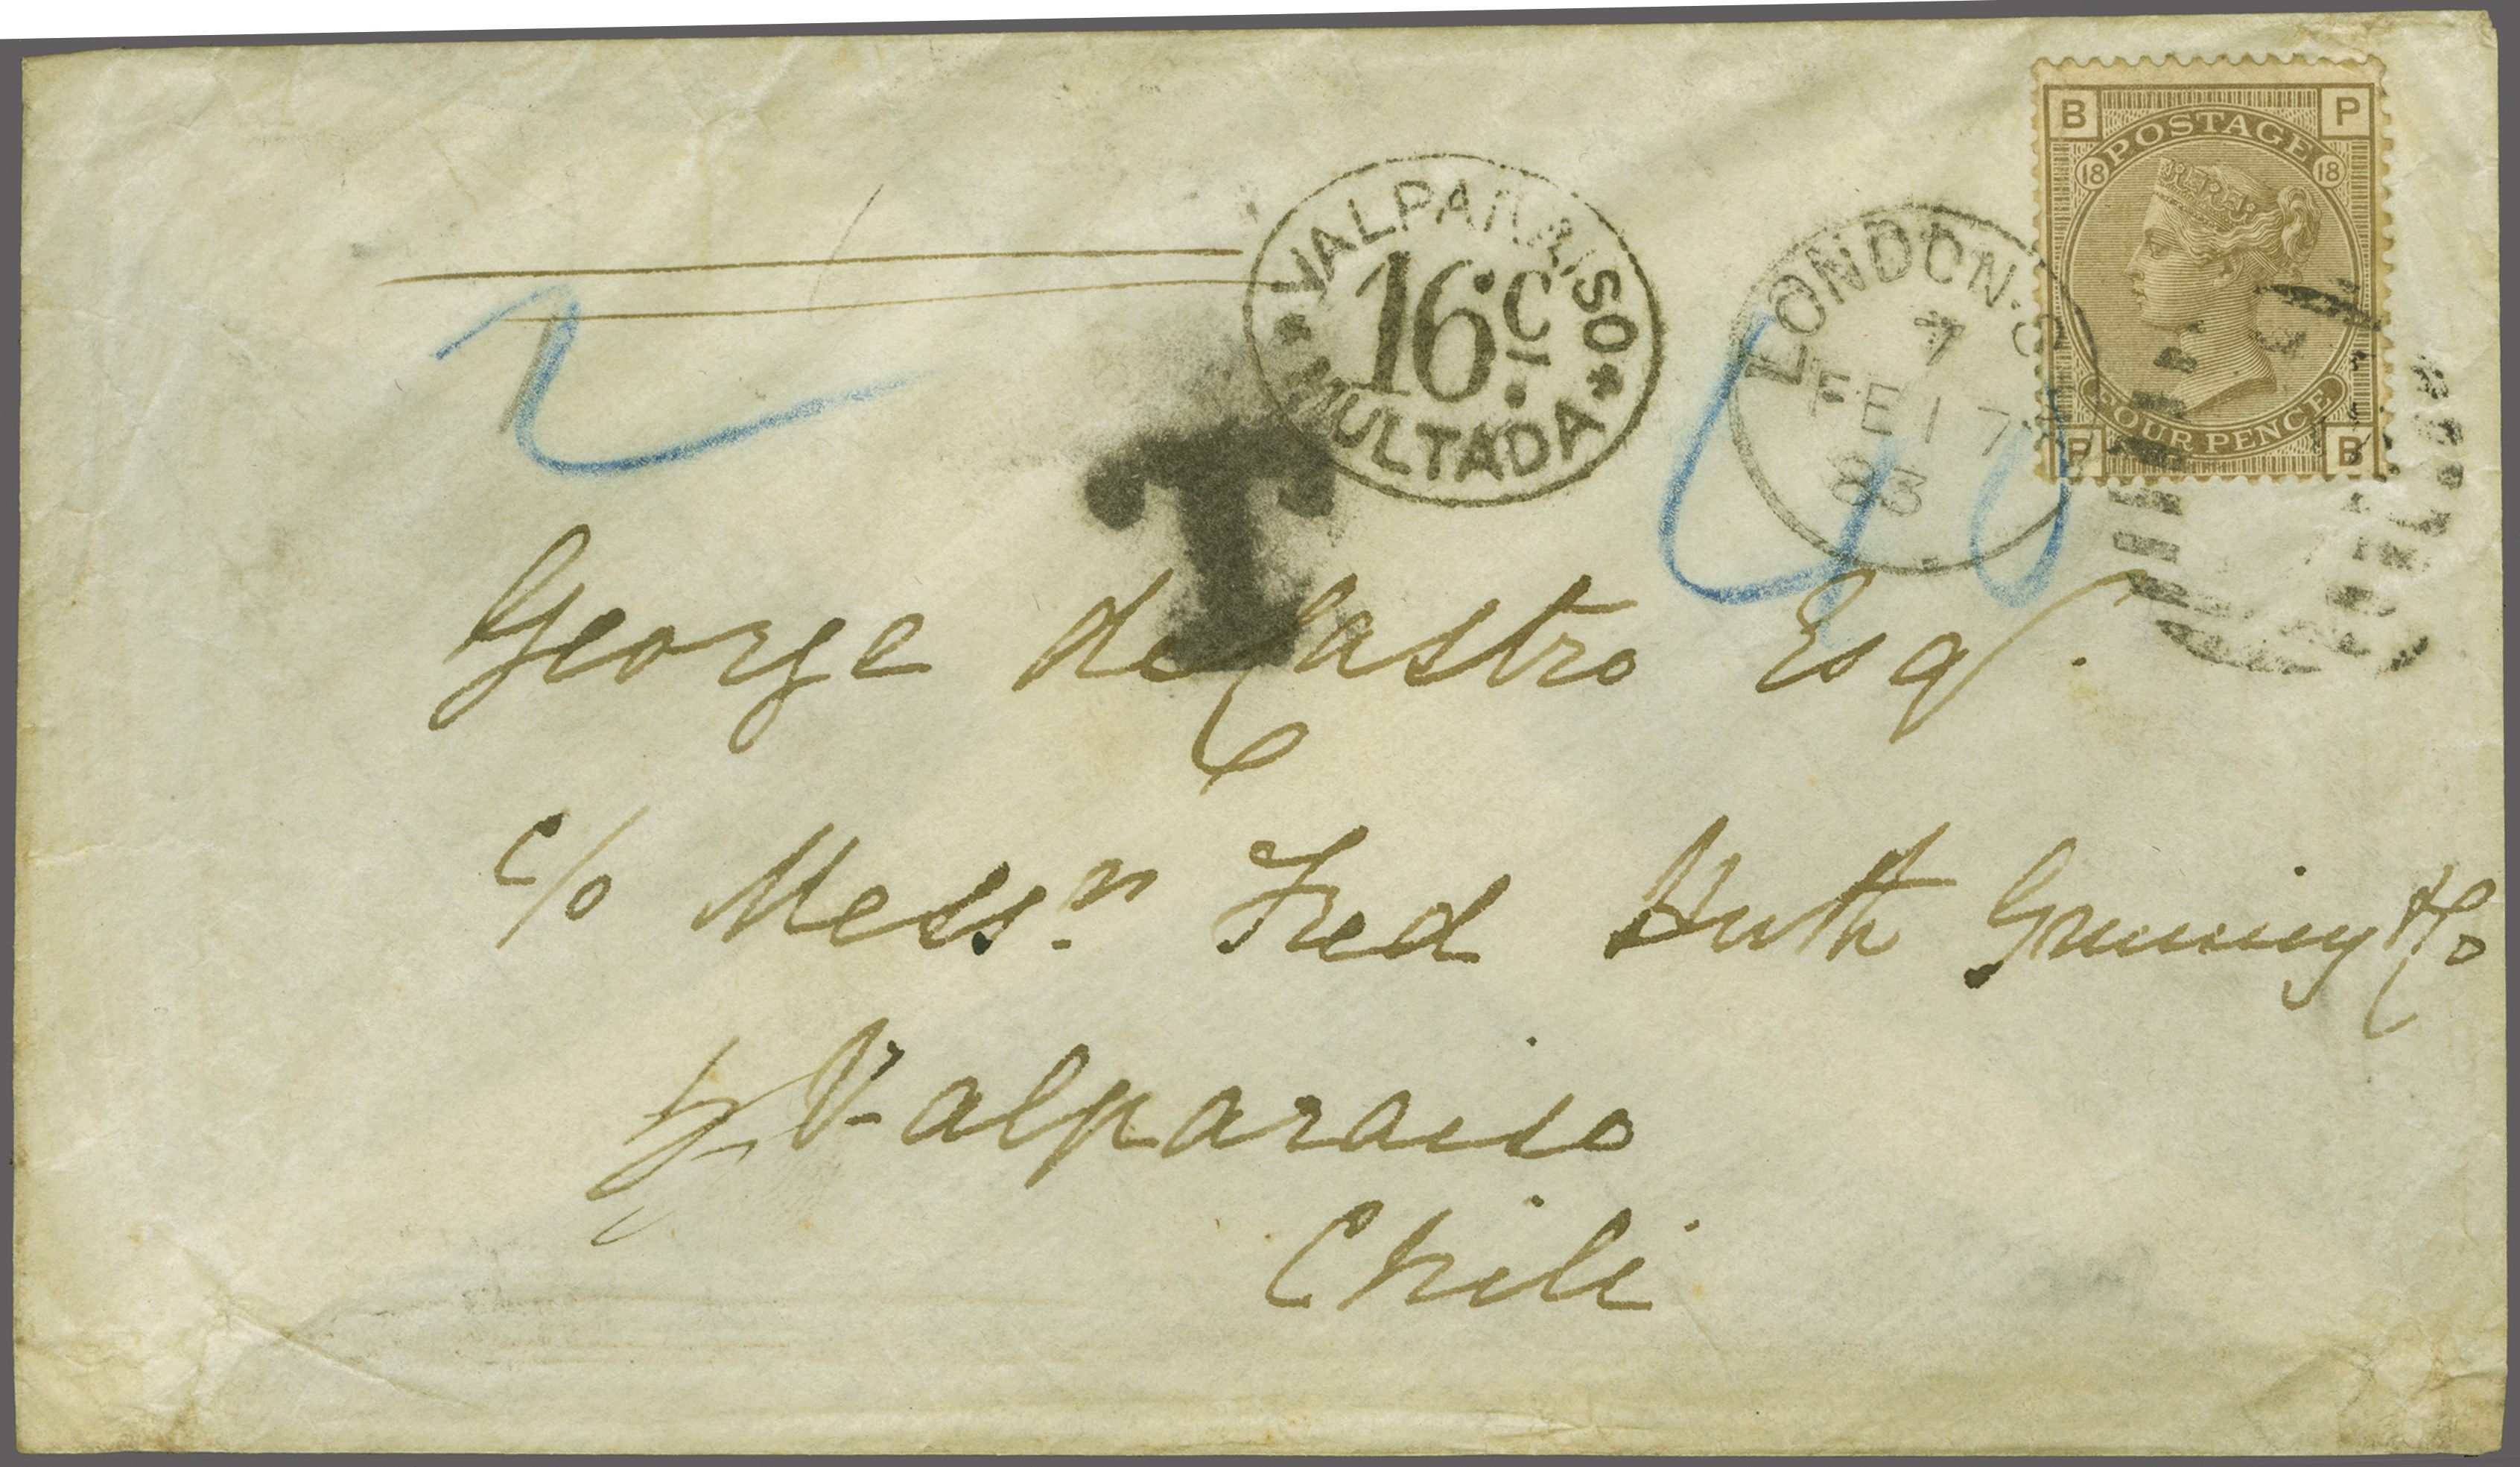 B P
POSTAGE
18 18
FOUR PENCE
P B
VALPARAISO
16 c
MULTADA
LONDON
7
FE 17
83
T
2
40
George de Castro Esqr.
c/o Messrs Fred Huth Gruning & Co
Valparaiso
Chili